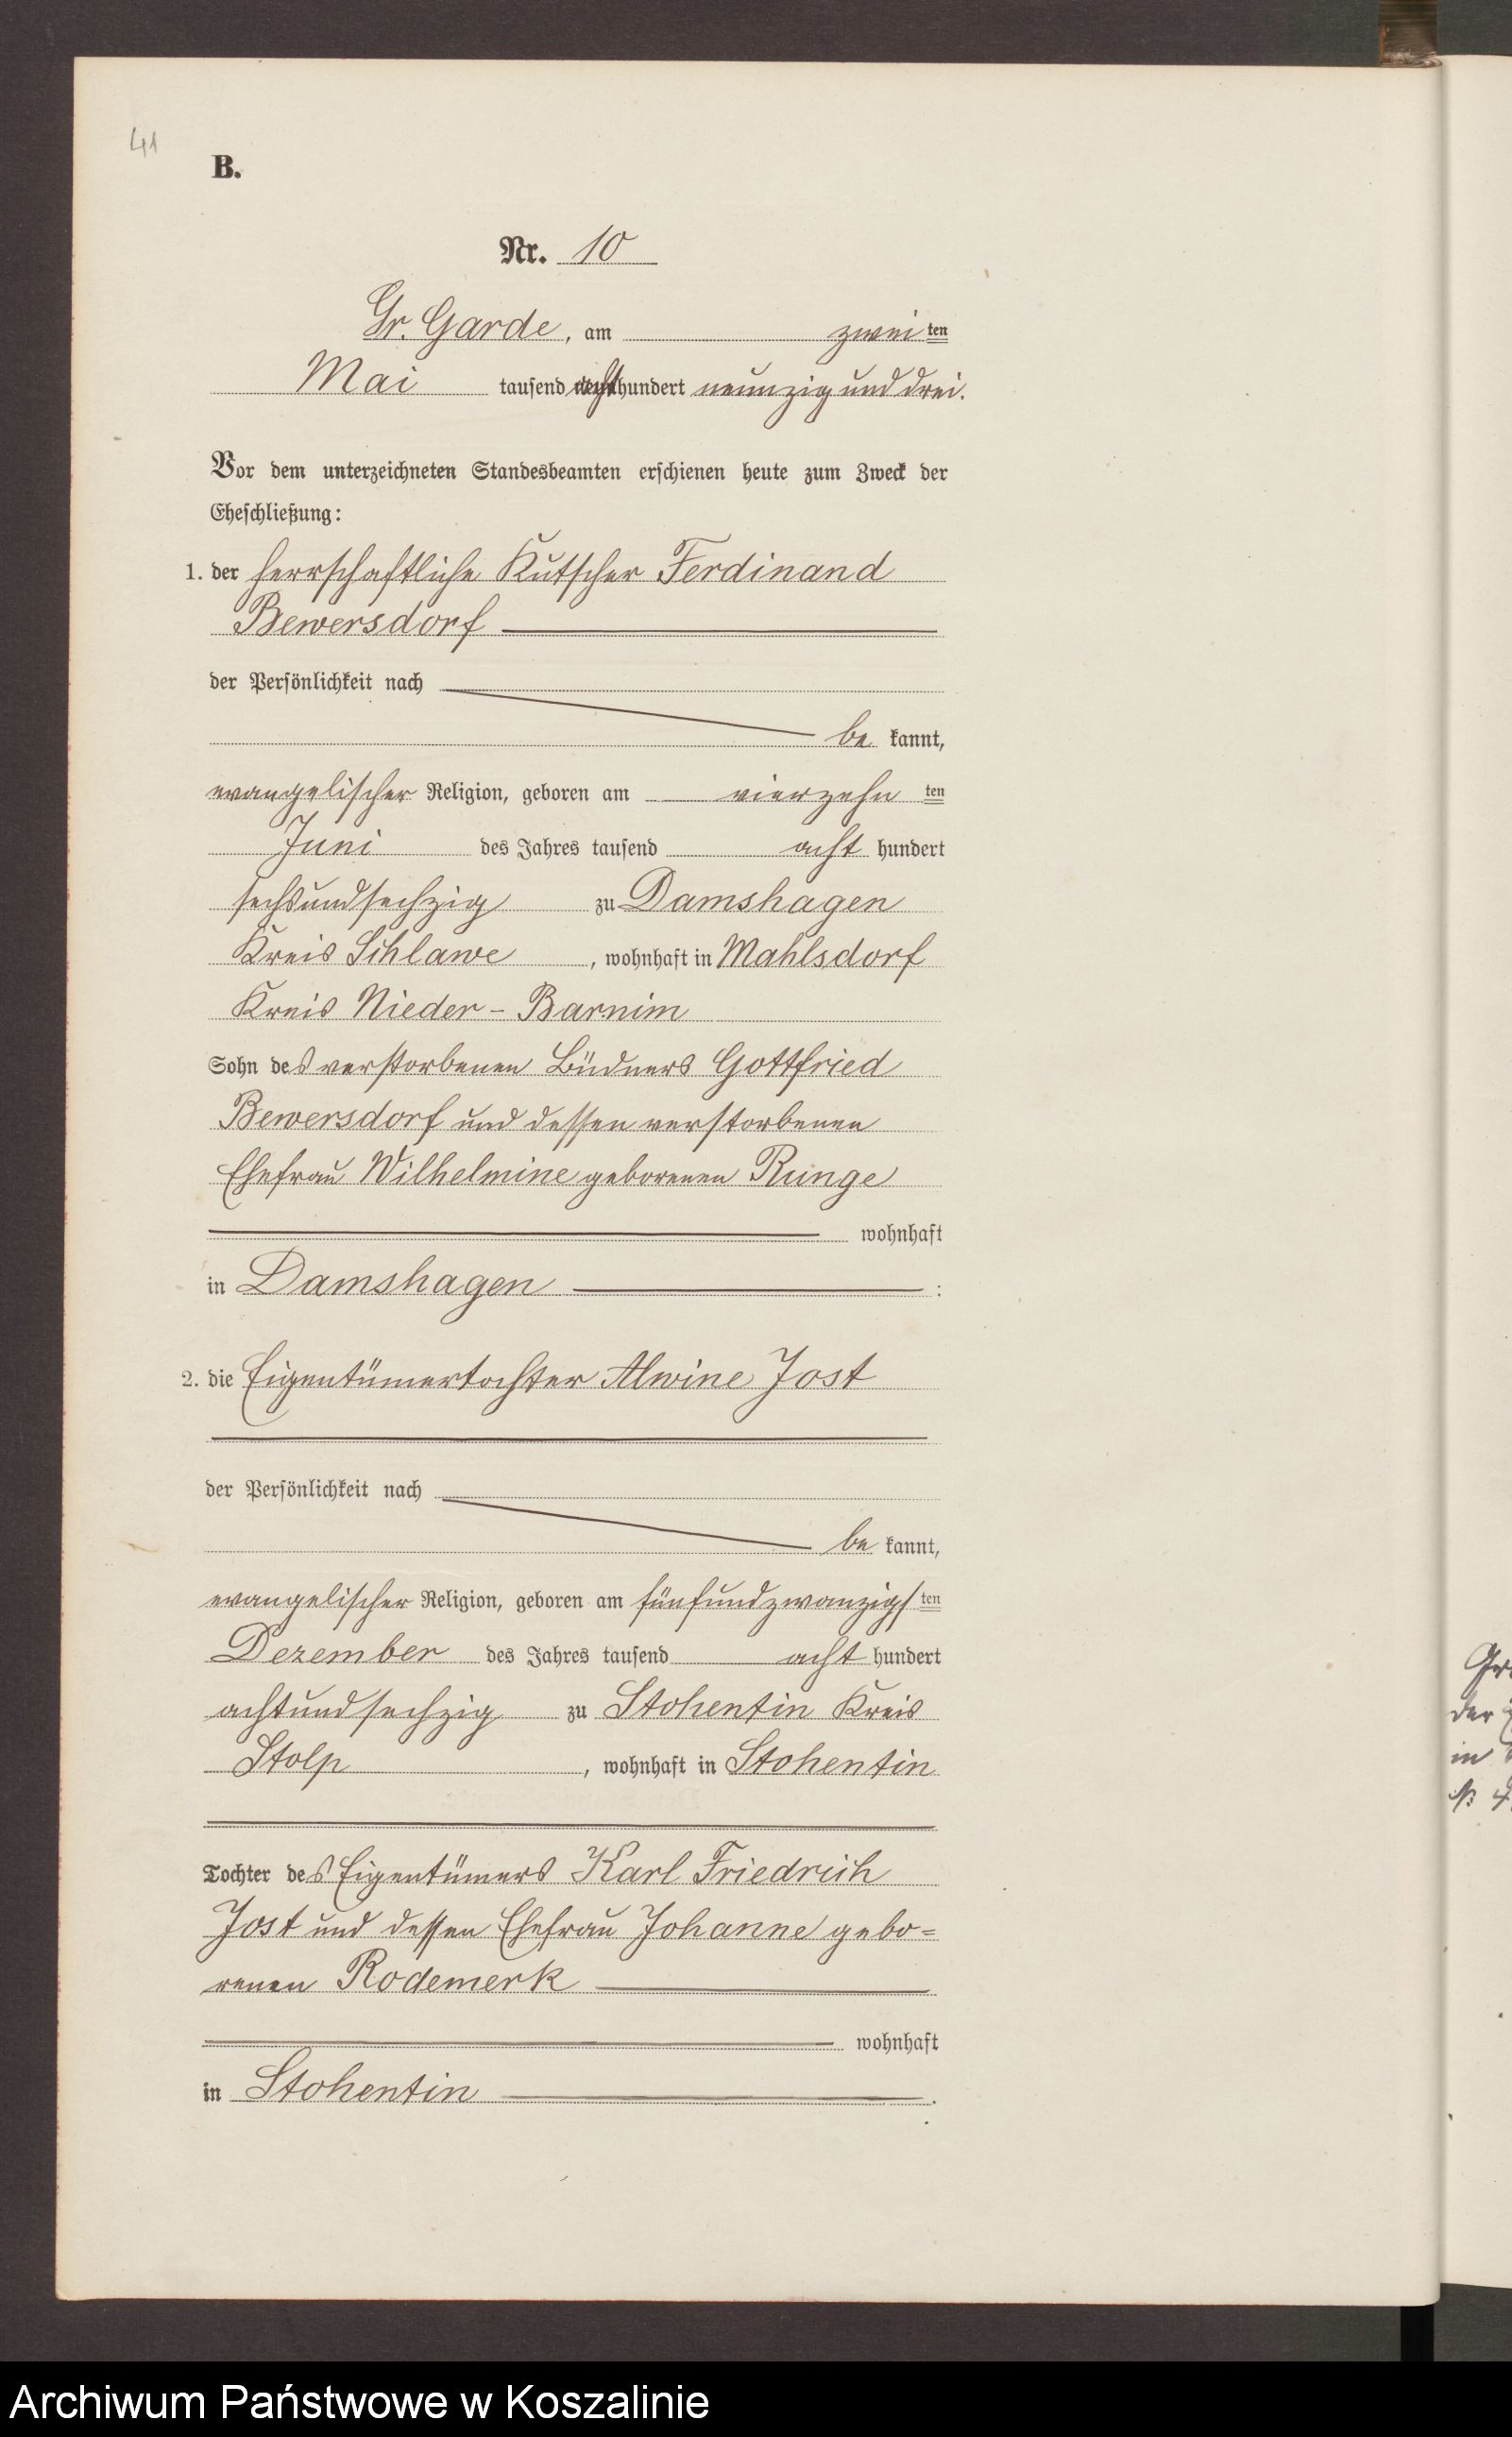 41
B.
Nr. 10
Gr. Garde, am zweiten
Mai tausend achthundert neunzig und drei.
Vor dem unterzeichneten Standesbeamten erschienen heute zum Zweck der
Eheschließung:
1. der herrschaftliche Kutscher Ferdinand
Bewersdorf
der Persönlichkeit nach
be kannt,
evangelischer Religion, geboren am vierzehn ten
Juni des Jahres tausend acht hundert
sechsundsechzig zu Damshagen
Kreis Schlawe, wohnhaft in Mahlsdorf
Kreis Nieder-Barnim
Sohn des verstorbenen Büdners Gottfried
Bewersdorf und dessen verstorbenen
Ehefrau Wilhelmine geborenen Runge
wohnhaft
in Damshagen :
2. die Eigentümertochter Alwine Jost
der Persönlichkeit nach
be kannt,
evangelischer Religion, geboren am fünfundzwanzigsten
Dezember des Jahres tausend acht hundert
achtundsechzig zu Stohentin Kreis
Stolp, wohnhaft in Stohentin
Tochter des Eigentümers Karl Friedrich
Jost und dessen Ehefrau Johanne gebo=
renen Rodemerk
wohnhaft
in Stohentin .
der
in
Archiwum Państwowe w Koszalinie